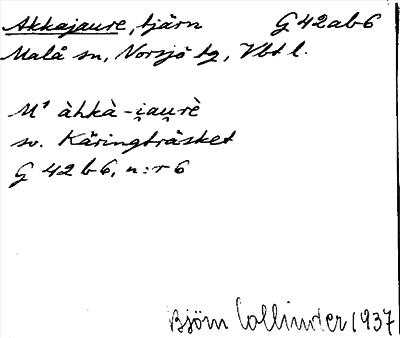 Akkajaure, tjärn G 42ab6
Malå sn, Norsjö tg, Vbt l.
M¹ àhkà-i̯au̯rè
sv. Käringträsket
G 42 b 6, n:r 6
Björn Collinder 1937